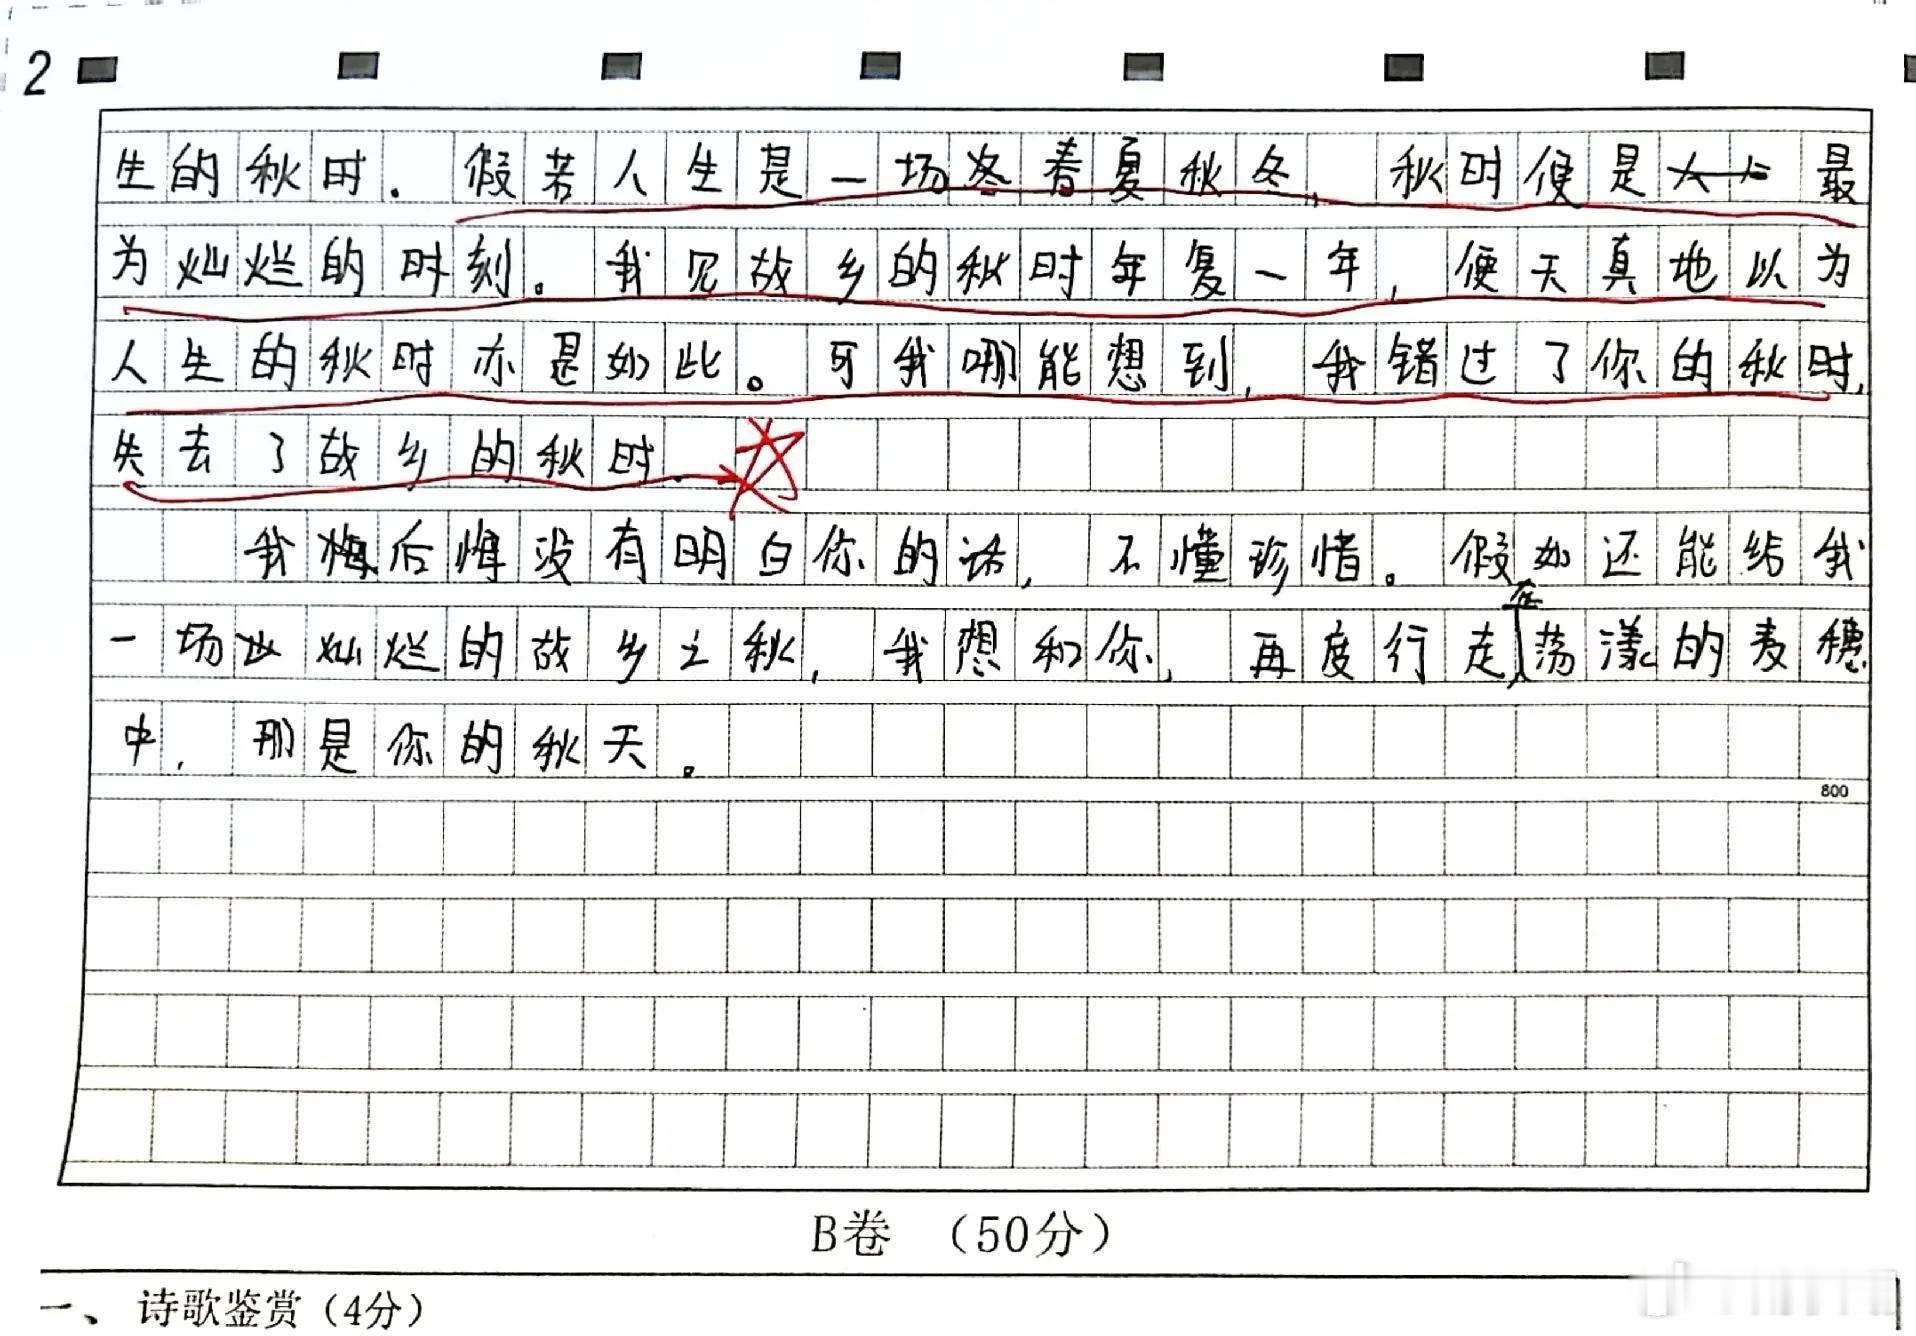 2
生的秋时.假若人生是一场冬春夏秋冬,秋时便是最
为灿烂的时刻。我见故乡的秋时年复一年,便天真地以为
人生的秋时亦是如此。可我哪能想到,我错过了你的秋时,
失去了故乡的秋时.
我悔后悔没有明白你的话,不懂珍惜。假如还能给我
一场灿烂的故乡之秋,我想和你,再度行走在荡漾的麦穗
中,那是你的秋天。
800
B卷 (50分)
一、诗歌鉴赏(4分)